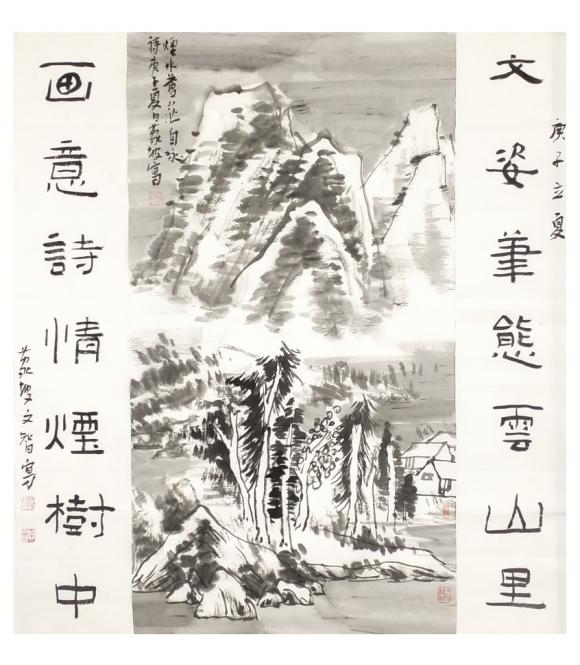 庚子立夏
文姿筆態雲山里
煙水蒼茫自詠
詩庚子夏日荔坡寫
画意詩情煙樹中
荔坡文智寫